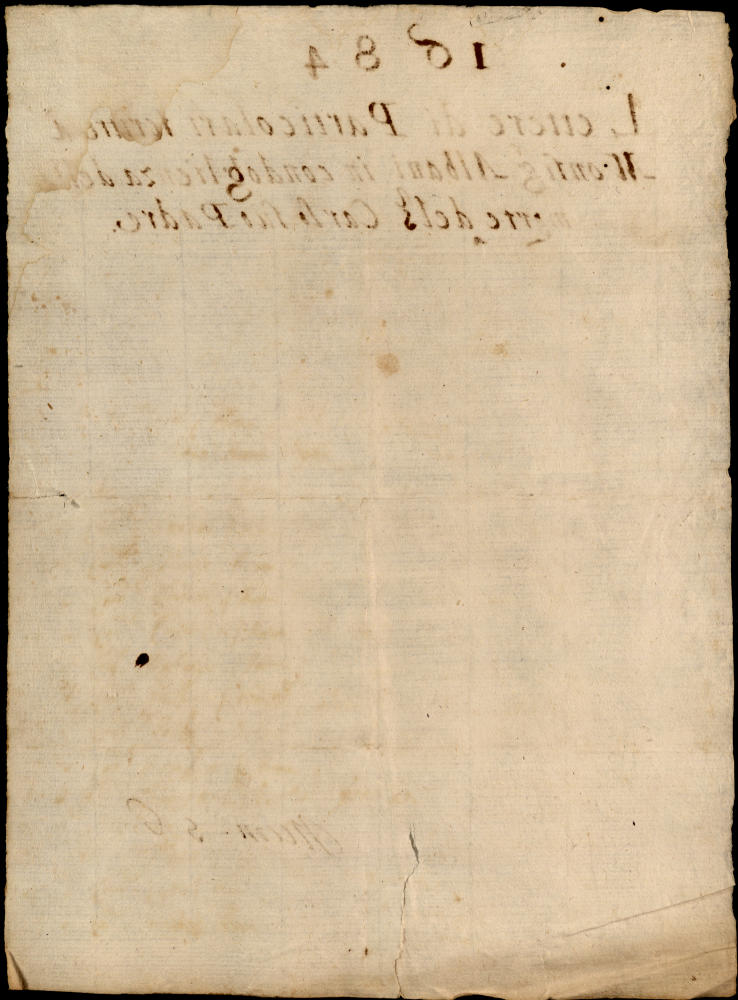 1684
Lettere di Particolari scritte à
Monsig. Albani in condoglienza della
morte del S. Carlo suo Padre.